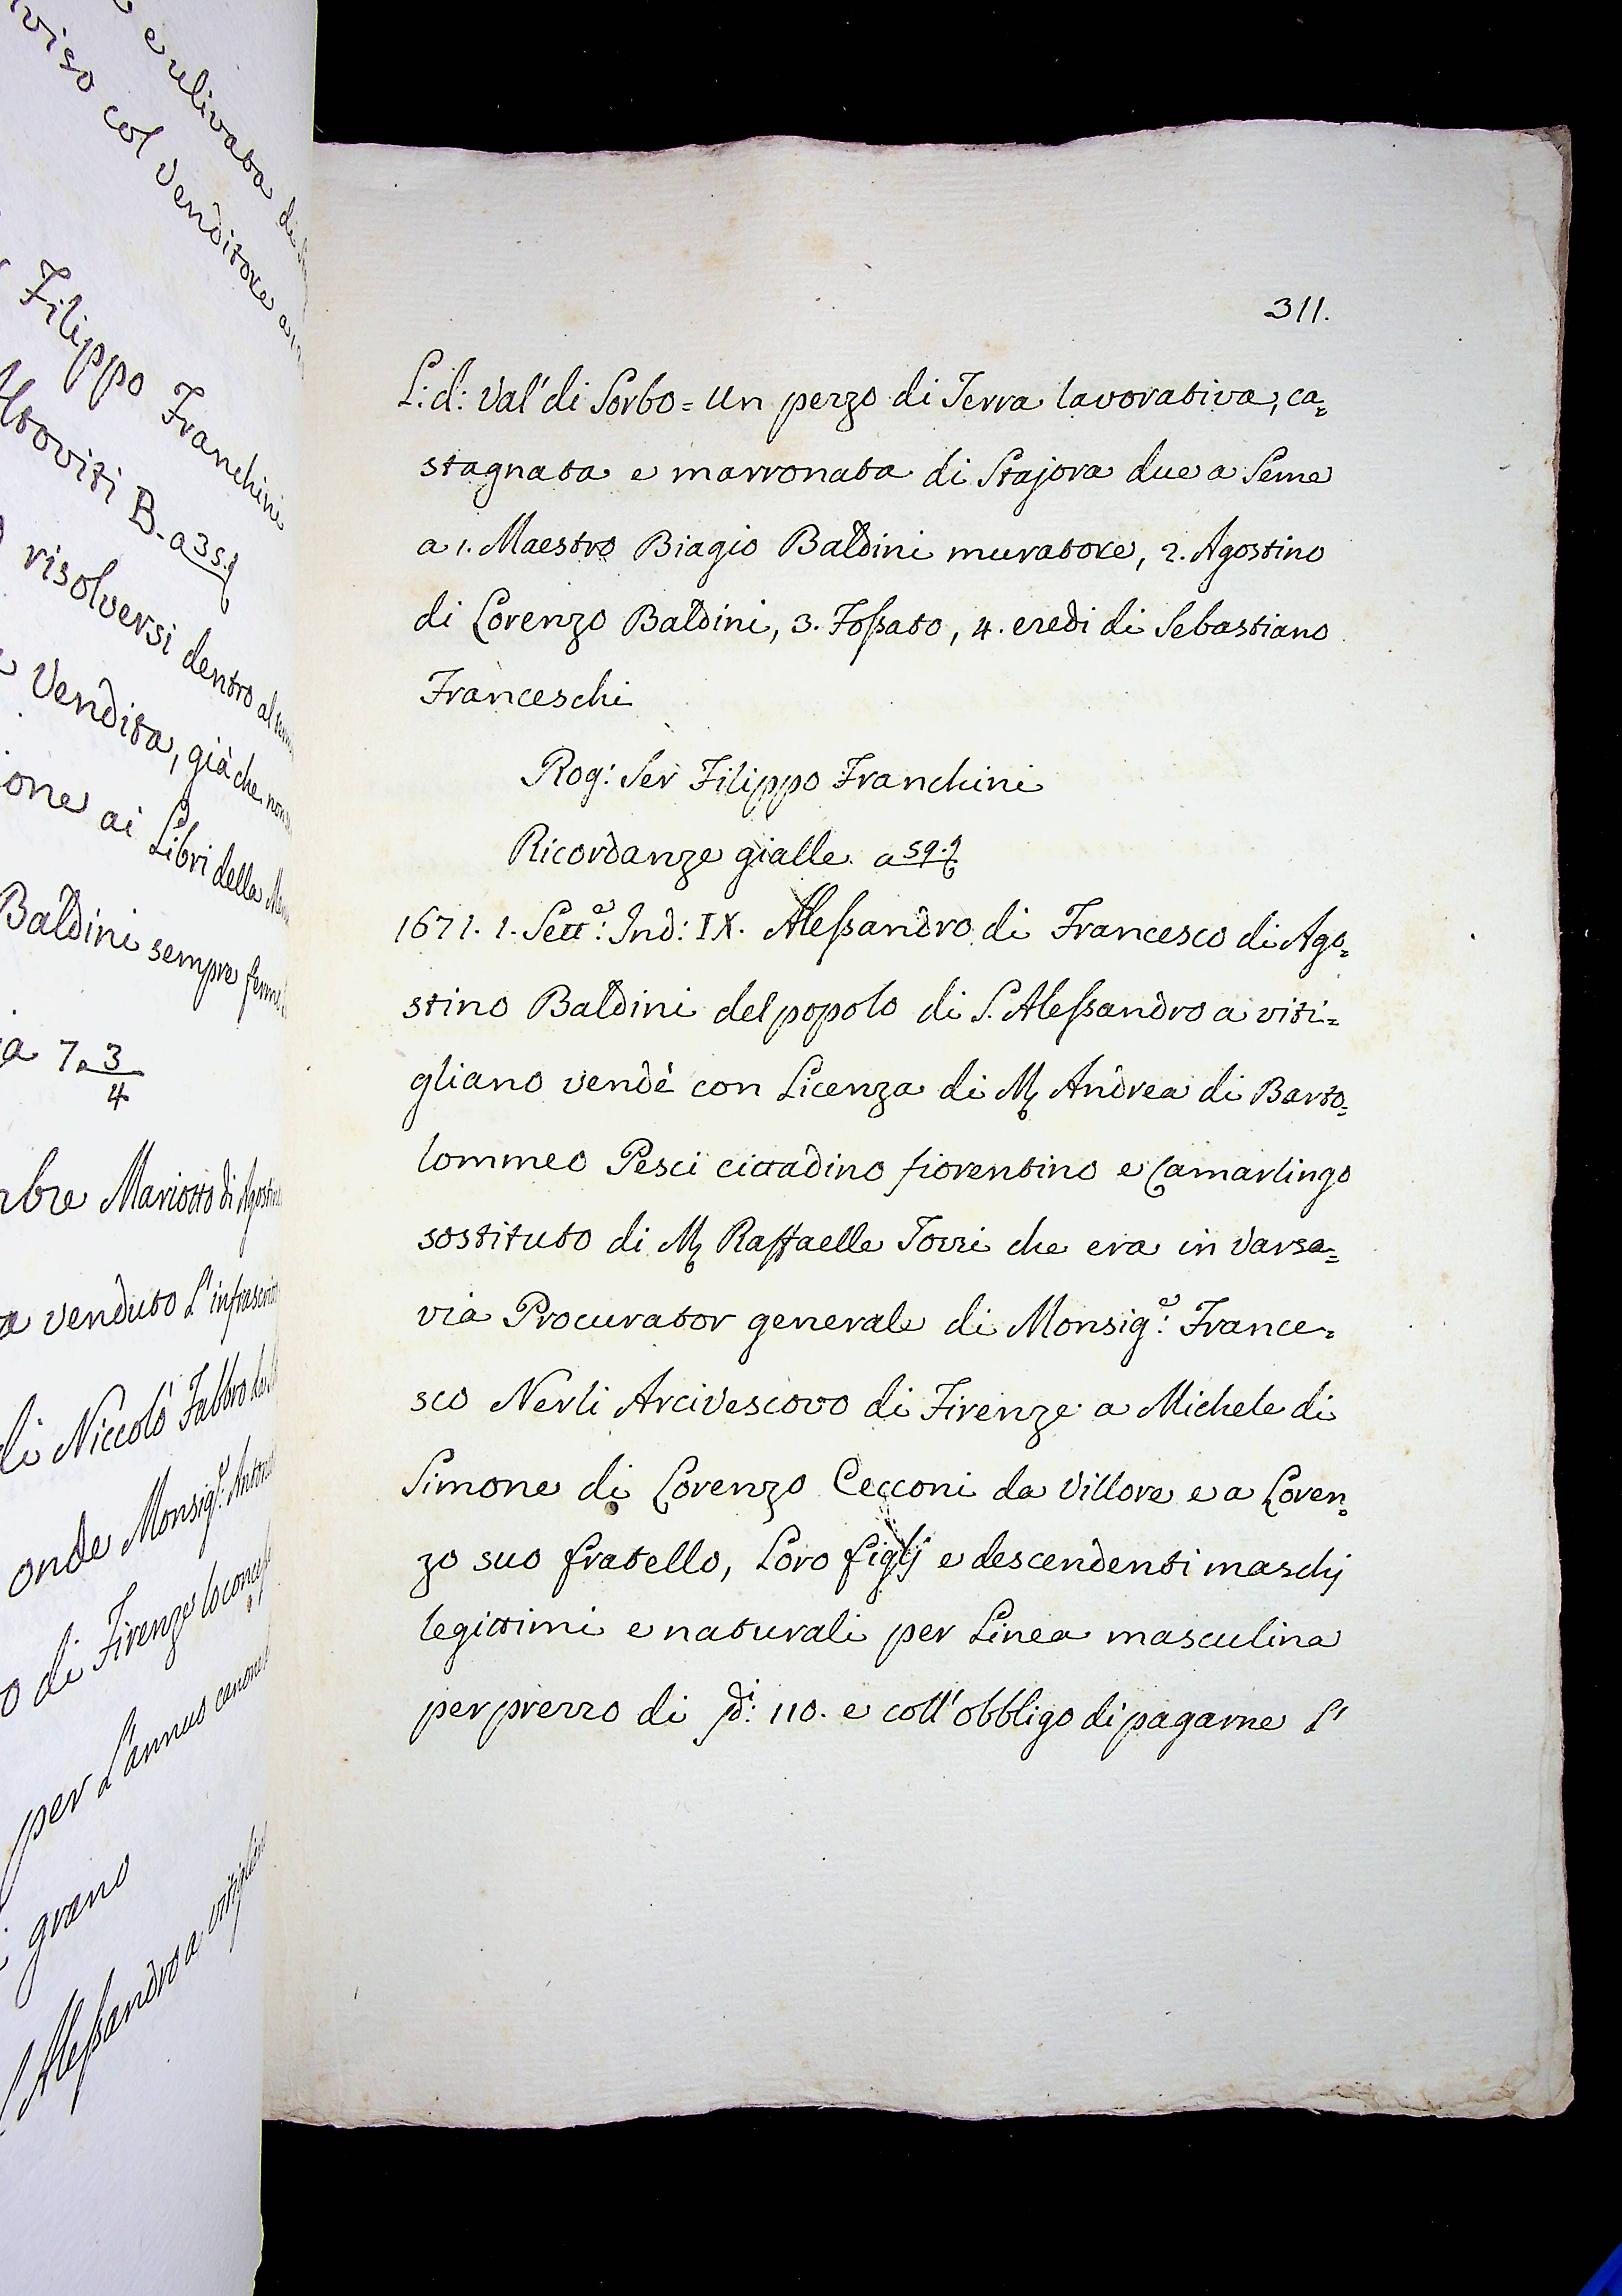 e ulivata di
viso col Venditore a
Filippo Franchini
Altoviti B. a 35.
risolversi dentro al
Vendita, già che non
one ai Libri della
Baldini sempre
a 7. 3/4
mbre Mariotto di Agostino
a venduto l'infrascritto
di Niccolò Fabbro
onde Monsig.e: Antonio
o di Firenze lo
per l'annuo canone
grano
Alessandro a vitigliano
311.
L: d: Val' di Sorbo = Un pezzo di Terra lavorativa, ca=
stagnata e marronata di Stajora due a Seme
a 1. Maestro Biagio Baldini muratore, 2. Agostino
di Lorenzo Baldini, 3. Fossato, 4. eredi di Sebastiano
Franceschi
Rog: Ser Filippo Franchini
Ricordanze gialle a 59.
1671. 1. Sett.e: Ind: IX. Alessandro di Francesco di Ago=
stino Baldini del popolo di S. Alessandro a viti=
gliano vendè con Licenza di M Andrea di Barto=
lommeo Pesci cittadino fiorentino e Camarlingo
sostituto di M Raffaelle Torri che era in Varsa=
via Procurator generale di Monsig.e: France=
sco Nerli Arcivescovo di Firenze a Michele di
Simone di Lorenzo Cecconi da Villore e a Loren=
zo suo fratello, Loro figlj e descendenti maschj
legittimi e naturali per Linea masculina
per prezzo di di: 110. e coll'obbligo di pagarne l'